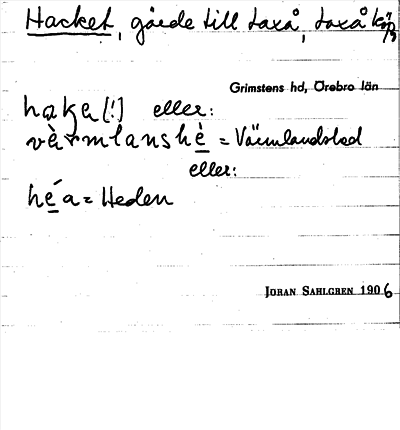 Hacket, gärde till Laxå, Laxå kö
Grimstens hd, Örebro län
haka (!) eller:
värmlanshè = Värmlandshed
eller:
héa = Heden
JOHAN SAHLGREN 1906